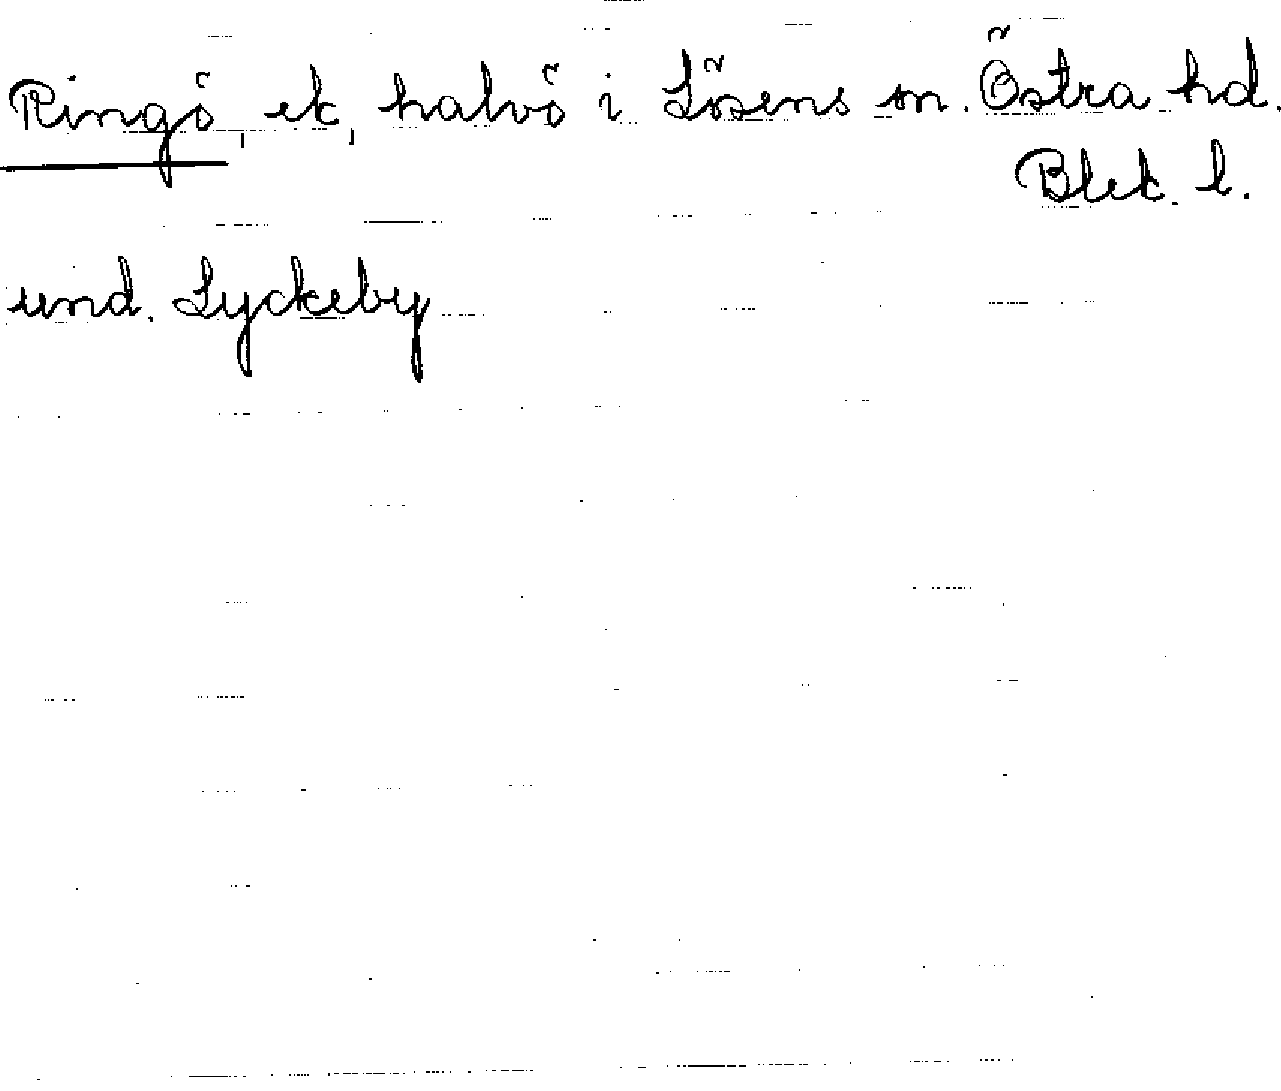 Ringö, ek, halvö i Lösens sn. Östra hd.
Blek. l.
und. Lyckeby